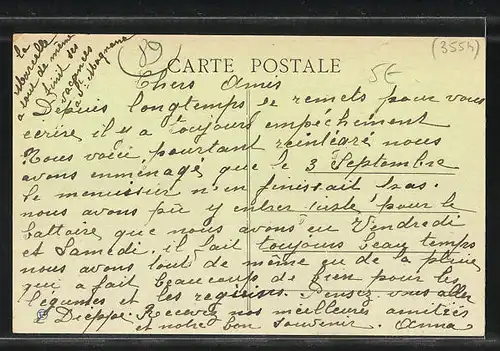 La
Marcelle
a tout de même
finit ses
vacances
à St Magnana
89
(3554)
5E
CARTE POSTALE
Chers Amis
Depuis longtemps je remets pour vous
écrire il y a toujours empéchement
Nous voici pourtant reintégré nous
avons enménagé que le 3 Septembre
le menuisier n'en finissait pas.
nous avons pû y entrer juste pour le
battaire que nous avons eu Vendredi
et Samedi. il fait toujours beau temps
nous avons tout de même eu de la pluie
qui a fait beaucoup de bien pour les
légumes et les regisins. Pensez vous aller
à Dieppe. Recevez nos meilleures amitiés
et notre bon souvenir. Anna